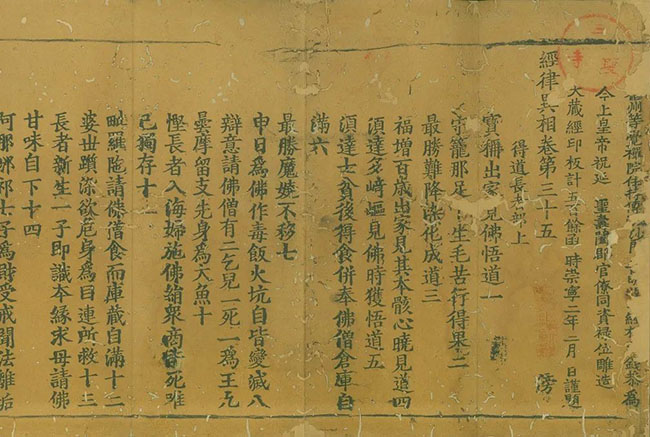 三聖寺
等覺禪院住持 恭為
今上皇帝祝延 聖壽闔郡官僚同資祿位雕造
大藏經印板計五百餘函時崇寧二年二月 日謹題
經律異相卷第三十五 滂
得道長者部上
寶稱出家見佛悟道一
守籠那足 生毛苦行得果二
最勝難降 化成道三
福增百歲出家見其本骸心曉見道四
須達多崎嶇見佛時獲悟道五
須達七貧後得食併奉佛僧倉庫自
滿六
最勝魔嬈不移七
申日爲佛作毒飯火坑自皆變滅八
辯意請佛僧有二乞兒一死一爲王九
曇摩留支先身爲大魚十
慳長者入海婦施佛絹衆商皆死唯
己獨存十一
毗羅陁請佛僧食而庫藏自滿十二
婆世躓深欲危身爲目連所救十三
長者新生一子即識本緣求母請佛
甘味自下十四
阿那邠祁七子爲財受戒聞法離垢